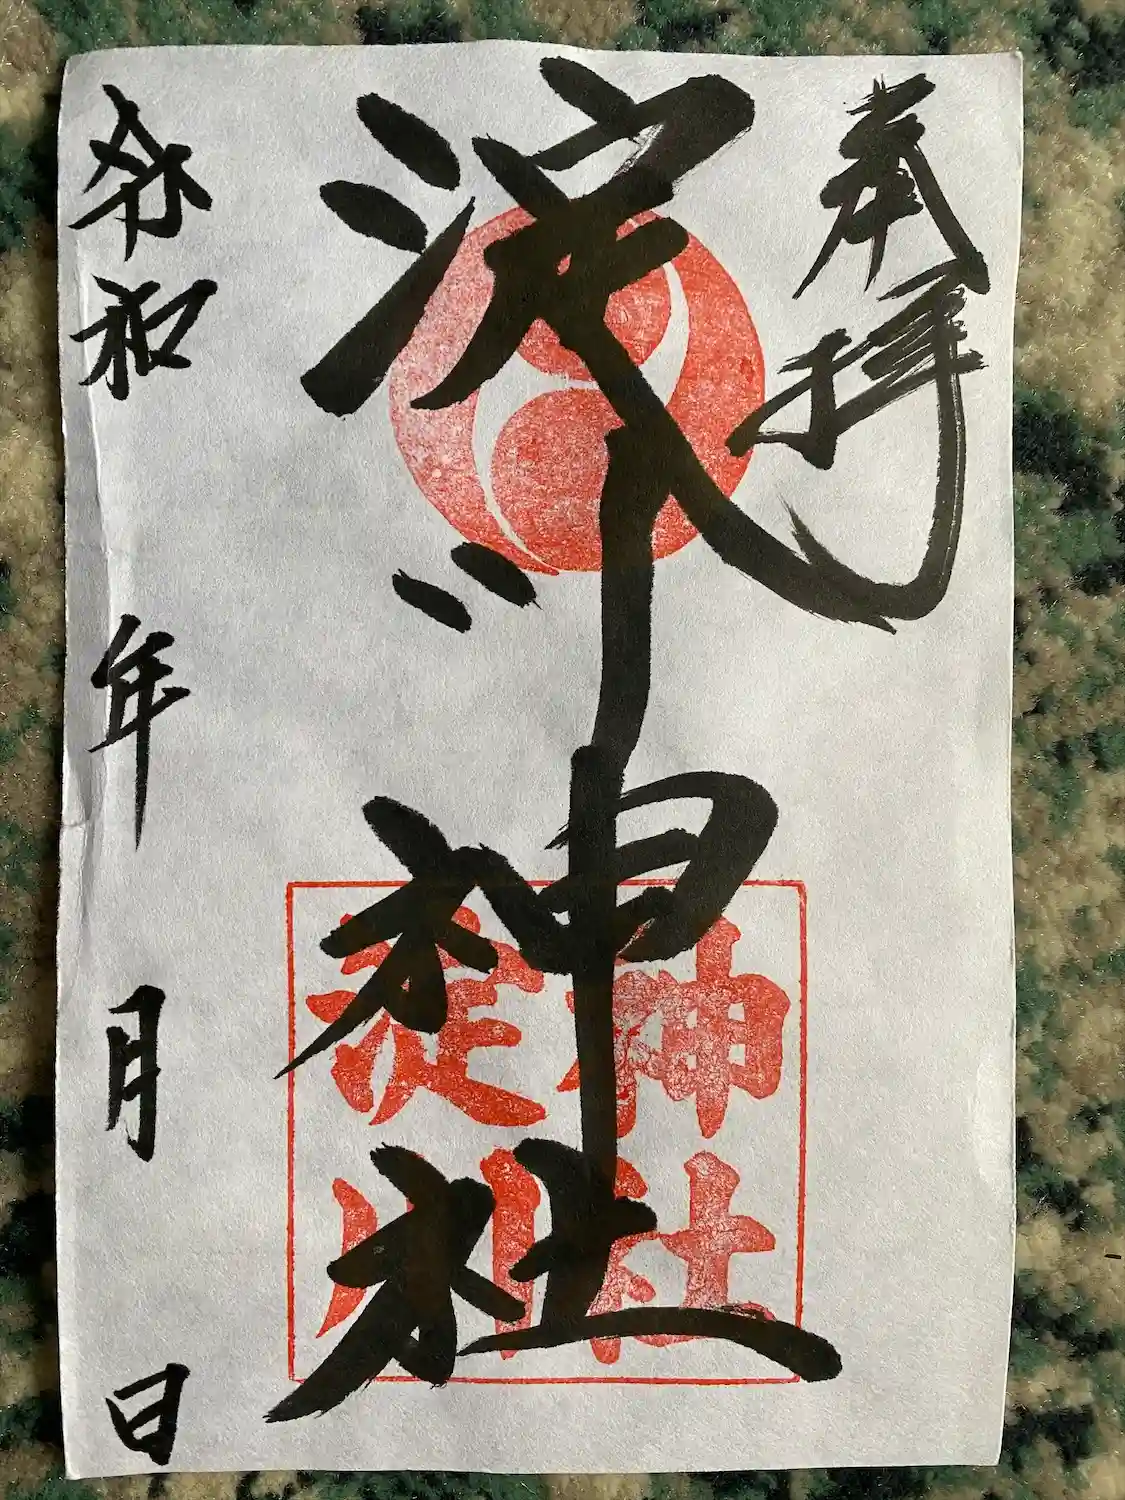 奉拝
淀川神社
淀川
神社
令和 年 月 日